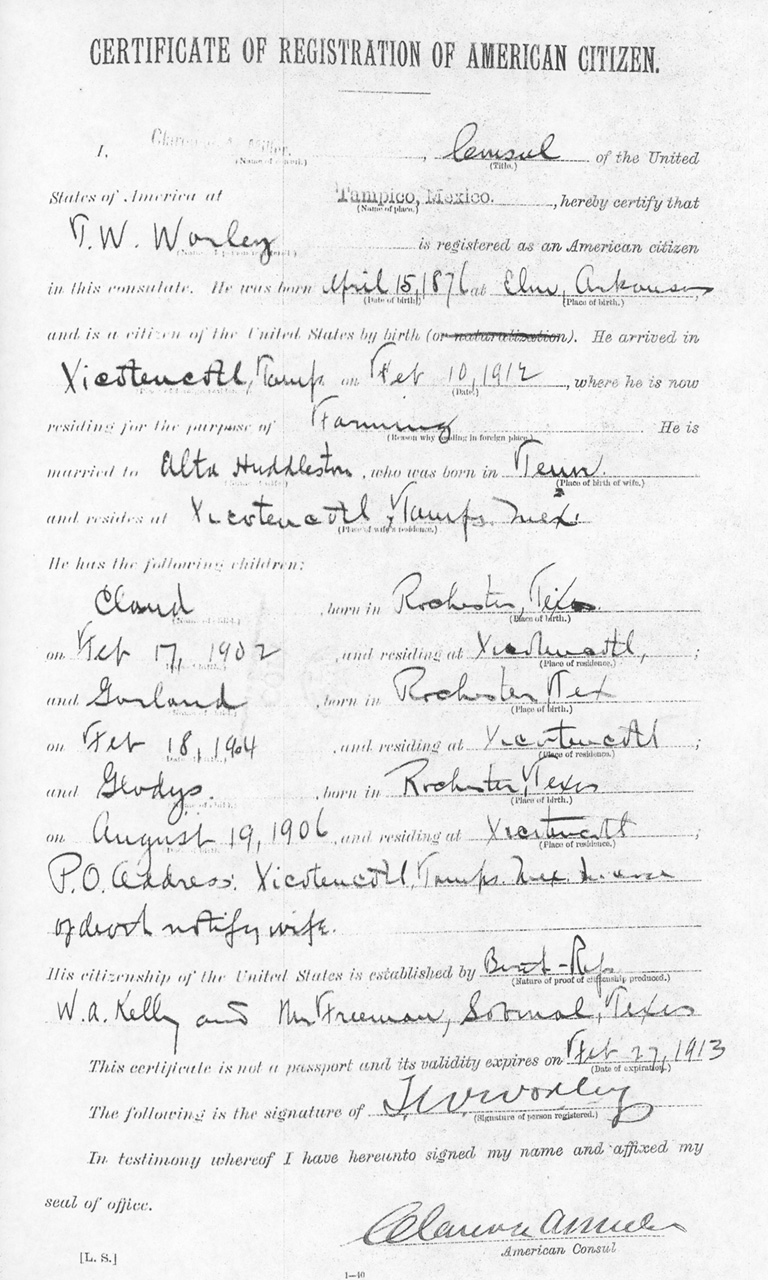 CERTIFICATE OF REGISTRATION OF AMERICAN CITIZEN.
I, Clarence A. Miller, Consul of the United
(Name of consul.) (Title.)
States of America at Tampico, Mexico., hereby certify that
(Name of place.)
T. W. Worley is registered as an American citizen
in this consulate. He was born April 15, 1876 at Elm, Arkansas
(Date of birth.) (Place of birth.)
and is a citizen of the United States by birth (or naturalization). He arrived in
Xicotencatl, Tamps on Feb 10, 1912, where he is now
(Date.)
residing for the purpose of Farming He is
(Reason why residing in foreign place.)
married to Alta Huddleston, who was born in Tenn.
(Place of birth of wife.)
and resides at Xicotencatl, Tamps. Mex.
(Place of wife's residence.)
He has the following children:
Claud, born in Rochester, Texas.
(Place of birth.)
on Feb 17, 1902, and residing at Xicotencatl, ;
(Place of residence.)
and Garland, born in Rochester, Tex
(Place of birth.)
on Feb 18, 1904, and residing at Xicotencatl ;
(Place of residence.)
and Gladys., born in Rochester, Texas
(Place of birth.)
on August 19, 1906, and residing at Xicotencatl ;
(Place of residence.)
P.O. Address: Xicotencatl, Tamps. Mex. In case
of death notify wife.
His citizenship of the United States is established by
(Nature of proof of citizenship produced.)
W. A. Kelly and Freeman, Texas
This certificate is not a passport and its validity expires on Feb 27, 1913
(Date of expiration.)
The following is the signature of T W Worley
(Signature of person registered.)
In testimony whereof I have hereunto signed my name and affixed my
seal of office.
Clarence A Miller
American Consul
[L. S.]
1—40